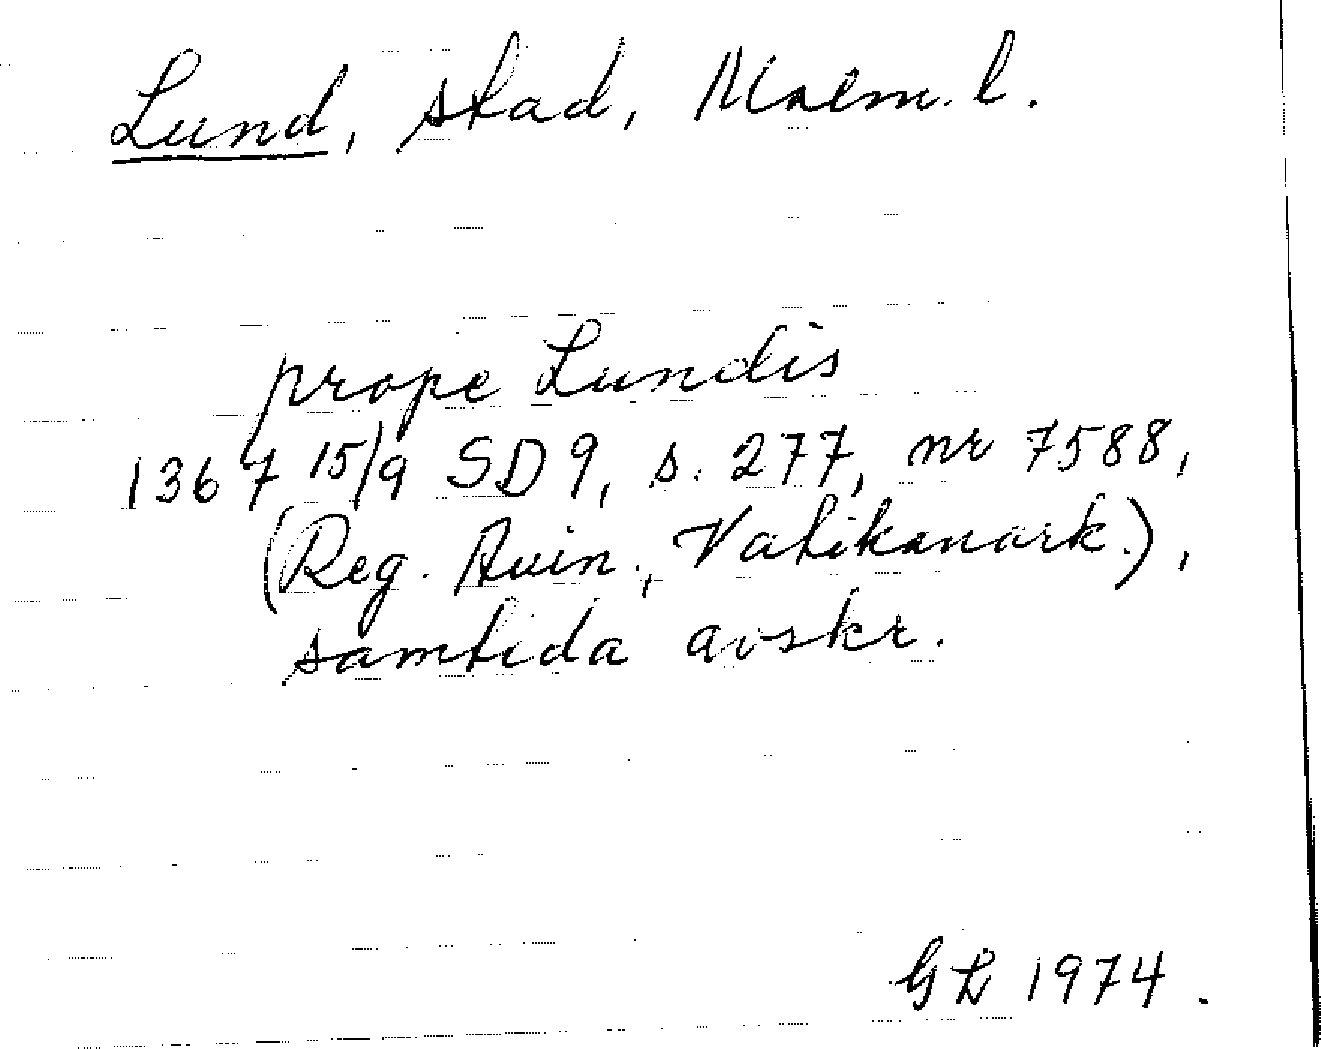 Lund, stad, Malm. l.
prope Lundis
1367 15/9 SD 9, s. 277, nr 7588,
(Reg. Avin., Vatikanark.),
samtida avskr.
GL 1974.